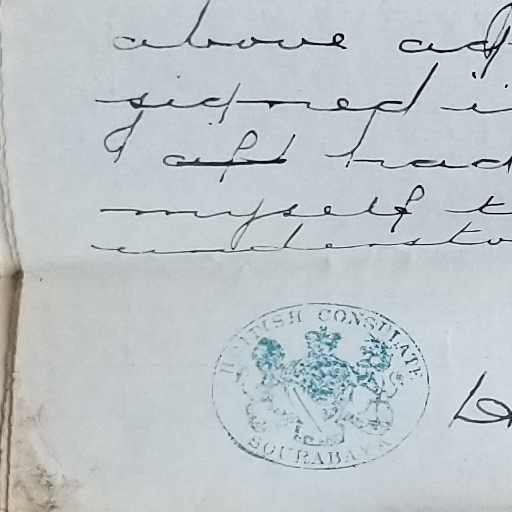 above
signed
I had
myself
understo
BRITISH CONSULATE
SOURABAYA